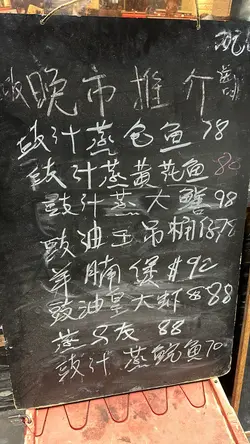 晚市推介
豉汁蒸包魚 78
豉汁蒸黃花魚 80
豉汁蒸大鱔 98
豉油王吊桶仔 78
羊腩煲 $90
豉油皇大虾 88
蒸乌灰 88
豉汁蒸鯇魚 70